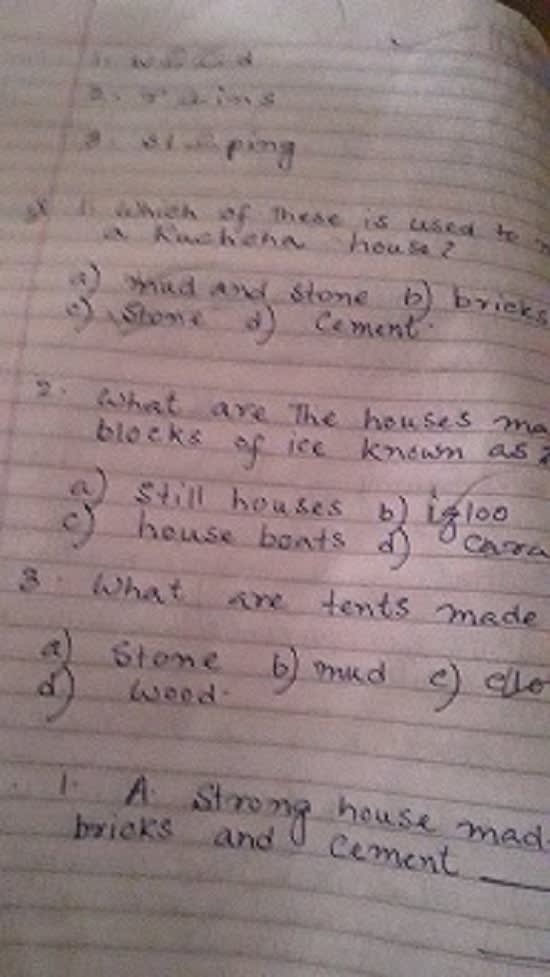 2. rains
3. sloping
1. Which of These is used to
a Kuchcha house?
a) mud and stone b) bricks
c) Stone d) Cement.
2. What are The houses ma
blocks of ice known as?
a) Still houses b) igloo
c) house boats d) Cara
3. What are tents made
a) Stone b) mud c) clo
d) Wood.
1. A Strong house mad
bricks and Cement